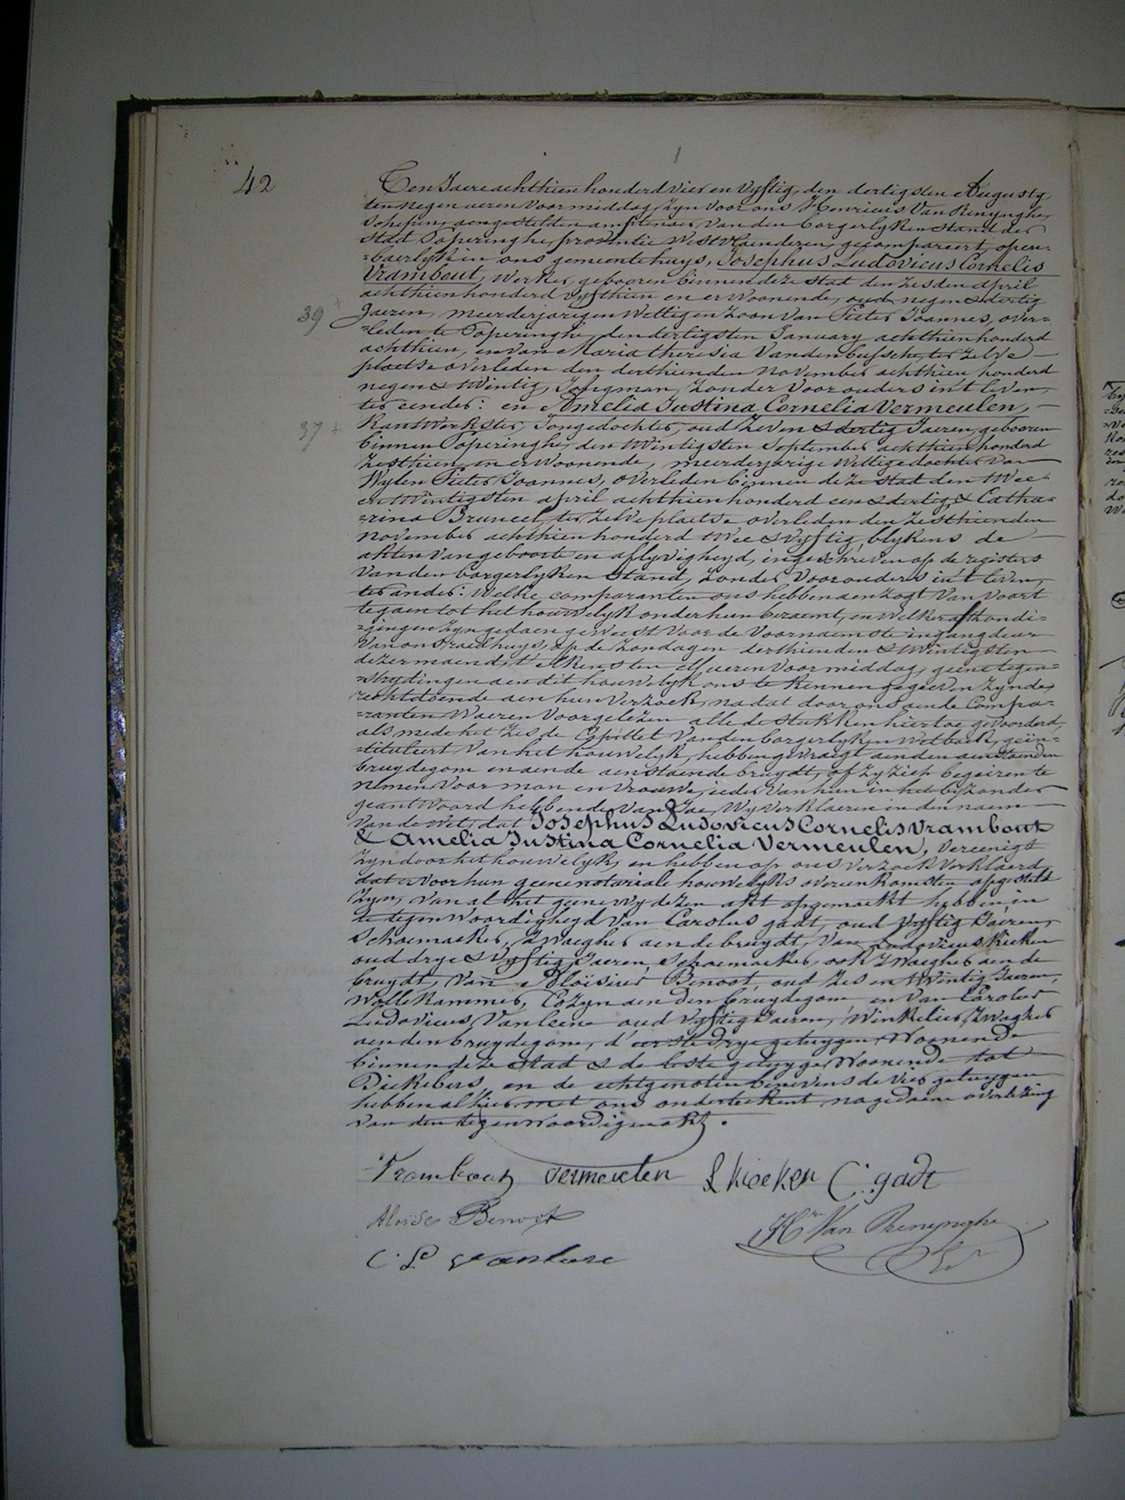 42
Ten Jaere achthien honderd vier en vyftig, den dertigsten Augusty
ten negen ueren voormiddag, zyn voor ons Henricus Van Renynghe,
schepen, aengestelden amptenaer van den borgerlyken stand der
stad Poperinghe, provintie West Vlaenderen, gecompareert, open-
-baerlyk in ons gemeentehuys, Josephus Ludovicus Cornelis
Vrambout, werker, gebooren binnen deze stad den zesden april
achthienhonderd vyfthien en er woonende, oud negen & dertig
39
Jaeren, meerderjarigen wettigen zoon van Pieter Joannes, over-
-leden te Poperinghe, den dertigsten January achthienhonderd
achthien, en van Maria theresia Vandenbussche, ter zelve
plaetse overleden den derthienden november achthien honderd
negen & twintig, Jongman, zonder voorouders in't leven,
ter eender: en Amelia Justina Cornelia Vermeulen,
37
Kantwerkster, Jongedochter, oud zeven & dertig Jaeren, gebooren
binnen Poperinghe, den twintigsten September achthienhonderd
zesthien, en er woonende, meerderjarige wettige dochter van
Wylen Pieter Joannes, overleden binnen deze stad den twee-
en twintigsten april achthienhonderd een & dertig, & Catha-
-rina Bruneel, ter zelve plaetse overleden den zesthienden
november achthien honderd twee & vyftig, blykens de
akten van geboorte en aflyvigheyd, ingeschreven op de registers
van den borgerlyken stand, zonder voorouders in't leven,
ter ander: Welke comparanten ons hebben aenzogt van voort
te gaen tot het houwelyk onder hun beraemt, en welkers afkondi-
-gingen zyn gedaen geweest voor de voornaemste ingangdeur
van ons raedhuys, op de zondagen derthienden & twintigsten
dezer maend, t'elkens ten elf ueren voormiddag, geene tegen-
-strydingen aen dit houwelyk ons te kennen gegeven zynde,
recht doende aen hun verzoek, na dat door ons aende compa-
-ranten waeren voorgelezen alle de stukken hiertoe gevoorderd,
als mede het zesde Capittel van den borgerlyken wetboek, geïn-
-tituleert van het houwelyk, hebben gevraegt aenden aenstaenden
bruydegom en aende aenstaende bruydt, of zy zich begeiren te
nemen voor man en vrouwe, ieder van hun in het byzonder
geantwoord hebbende van Jae, Wy verklaeren in den naem
van de wet, dat Josephus Ludovicus Cornelis Vrambout
& Amelia Justina Cornelia Vermeulen, vereenigt
zyn door het houwelyk, en hebben op ons verzoek verklaerd
dat er voor hun geene notariale houwelyks overeenkomsten opgesteld
zyn, van al het geene wy dezen akt opgemaekt hebben in
te tegenwoordigheyd van Carolus gadt, oud vyftig Jaeren,
schoemaeker, zwaegher aen de bruydt, van Ludovicus Kieken
oud drye & vyftig Jaeren, schoemaeker, ook zwaegher aen de
bruydt, van Aloïsius Benoot, oud zes en twintig Jaeren,
wollekammer, Cozyn aen den bruydegom en van Carolus
Ludovicus Vanleene oud vyftig Jaeren, winkelier, zwagher
aen den bruydegom, d'eerste drye getuygen woonende
binnen deze stad & de leste getuyge woonende tot
Dickebusch, en de echtgenoten benevens de vier getuygen
hebben alhier met ons onderteekent, na gedaene overlezing
van den tegenwoordigen akt.
Vrambout Vermeulen L Kieken C: gadt
Aloïse Benoot Hri Van Renynghe
C L Vanleene